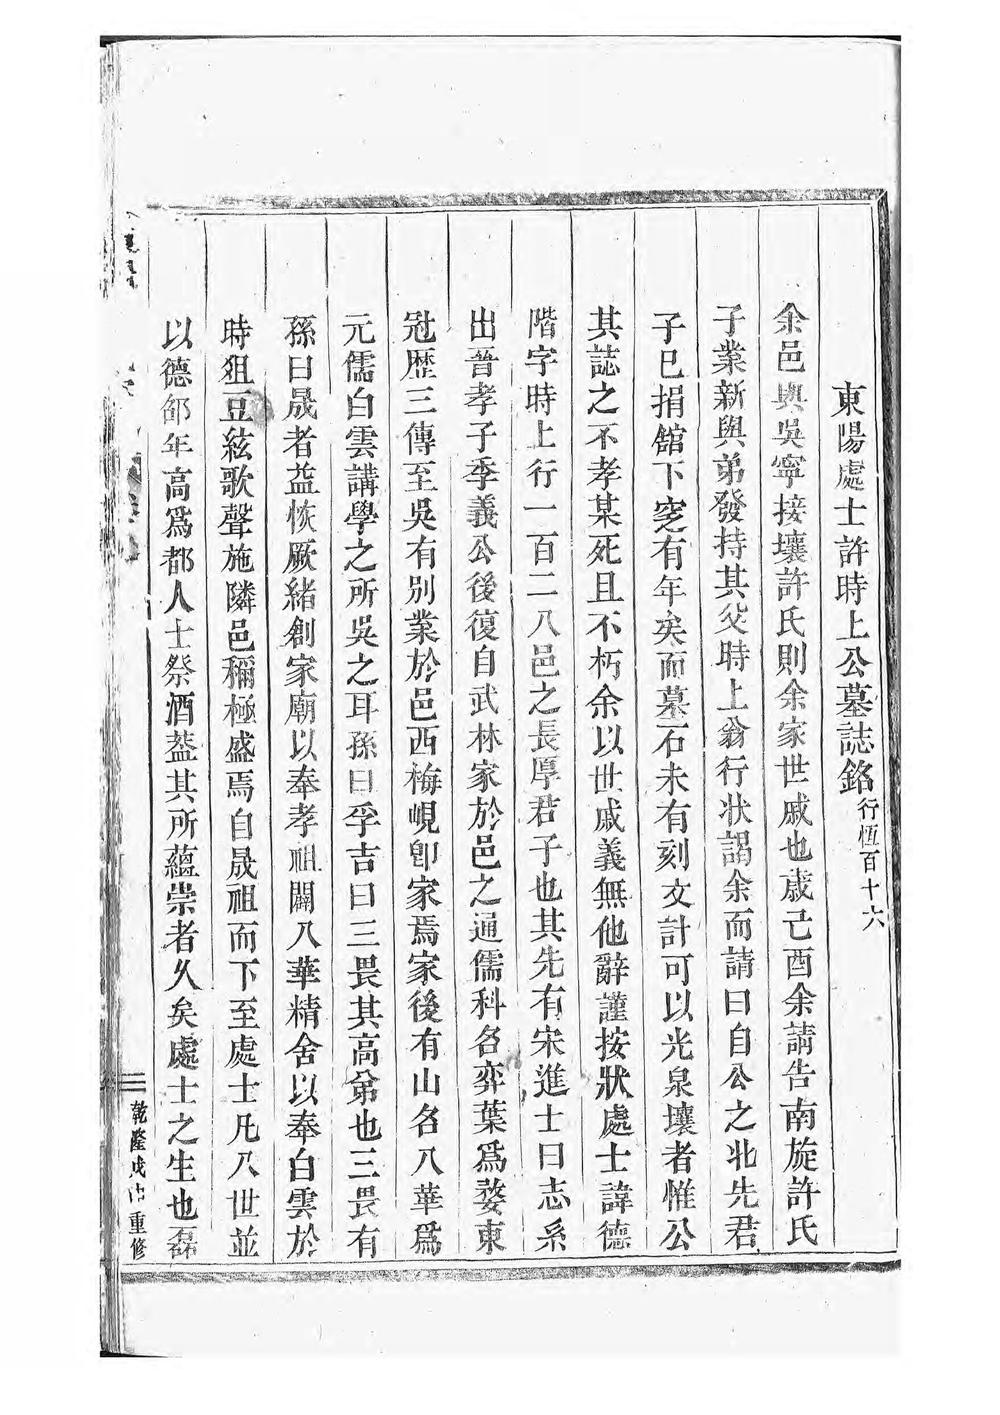 東陽處士許時上公墓誌銘行恆百十六
余邑與吳寧接壤許氏則余家世戚也歲己酉余請告南旋許氏
子業新與弟發持其父時上翁行状謁余而請曰自公之北先君
子已捐館下窆有年矣而墓石未有刻文計可以光泉壤者惟公
其誌之不孝某死且不朽余以世戚義無他辭謹按狀處士諱德
階字時上行一百二八邑之長厚君子也其先有宋進士曰志系
出晉孝子季義公後復自武林家於邑之通儒科名弈葉爲婺東
冠歷三傳至吳有別業於邑西梅峴卽家焉家後有山名八華爲
元儒白雲講學之所吳之耳孫曰孚吉曰三畏其高弟也三畏有
孫曰晟者益恢厥緒創家廟以奉孝祖闢八華精舍以奉白雲於
時俎豆絃歌聲施隣邑稱極盛焉自晟祖而下至處士凡八世並
以德邵年高爲都人士祭酒葢其所蘊崇者久矣處士之生也磊
乾隆戊申重修